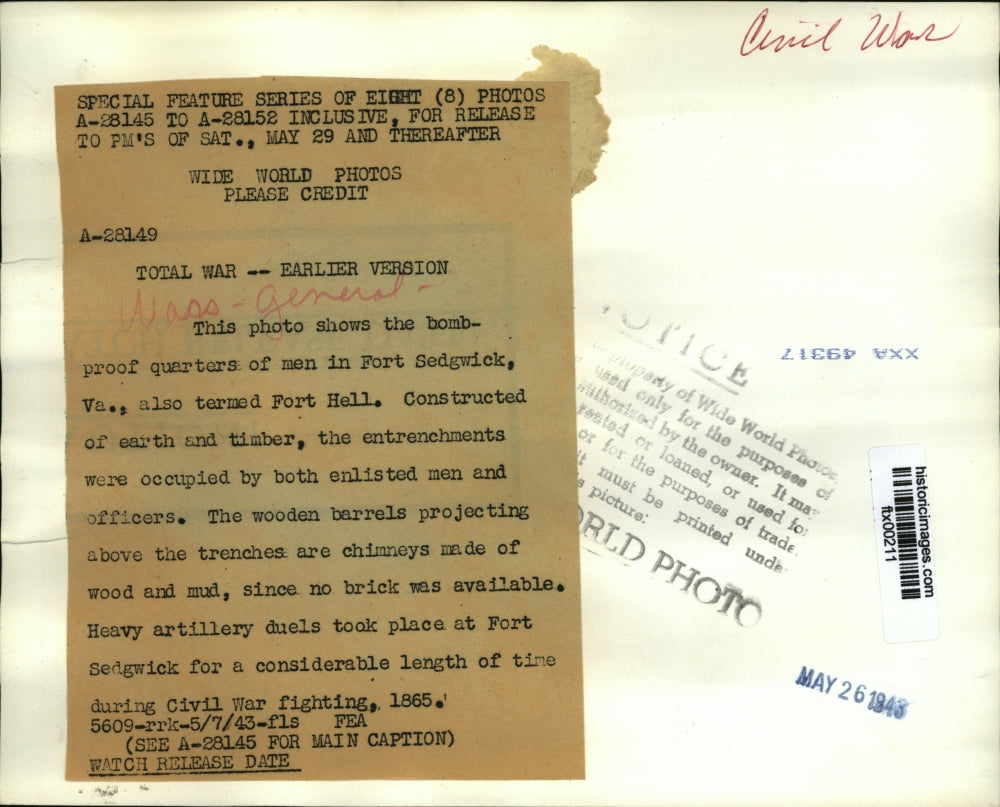 Civil War
SPECIAL FEATURE SERIES OF EIGHT (8) PHOTOS
A-28145 TO A-28152 INCLUSIVE, FOR RELEASE
TO PM'S OF SAT., MAY 29 AND THEREAFTER
WIDE WORLD PHOTOS
PLEASE CREDIT
A-28149
TOTAL WAR -- EARLIER VERSION
Wars - General -
This photo shows the bomb-
proof quarters of men in Fort Sedgwick,
Va., also termed Fort Hell. Constructed
of earth and timber, the entrenchments
were occupied by both enlisted men and
officers. The wooden barrels projecting
above the trenches are chimneys made of
wood and mud, since no brick was available.
Heavy artillery duels took place at Fort
Sedgwick for a considerable length of time
during Civil War fighting, 1865.'
5609-rrk-5/7/43-fls FEA
(SEE A-28145 FOR MAIN CAPTION)
WATCH RELEASE DATE
NOTICE
property of Wide World Photos
used only for the purposes of
authorized by the owner. It may
rented or loaned, or used for
or for the purposes of trade.
it must be printed under
s picture:
ORLD PHOTO
XXA 49317
historicimages.com
fbx00211
MAY 26 1943